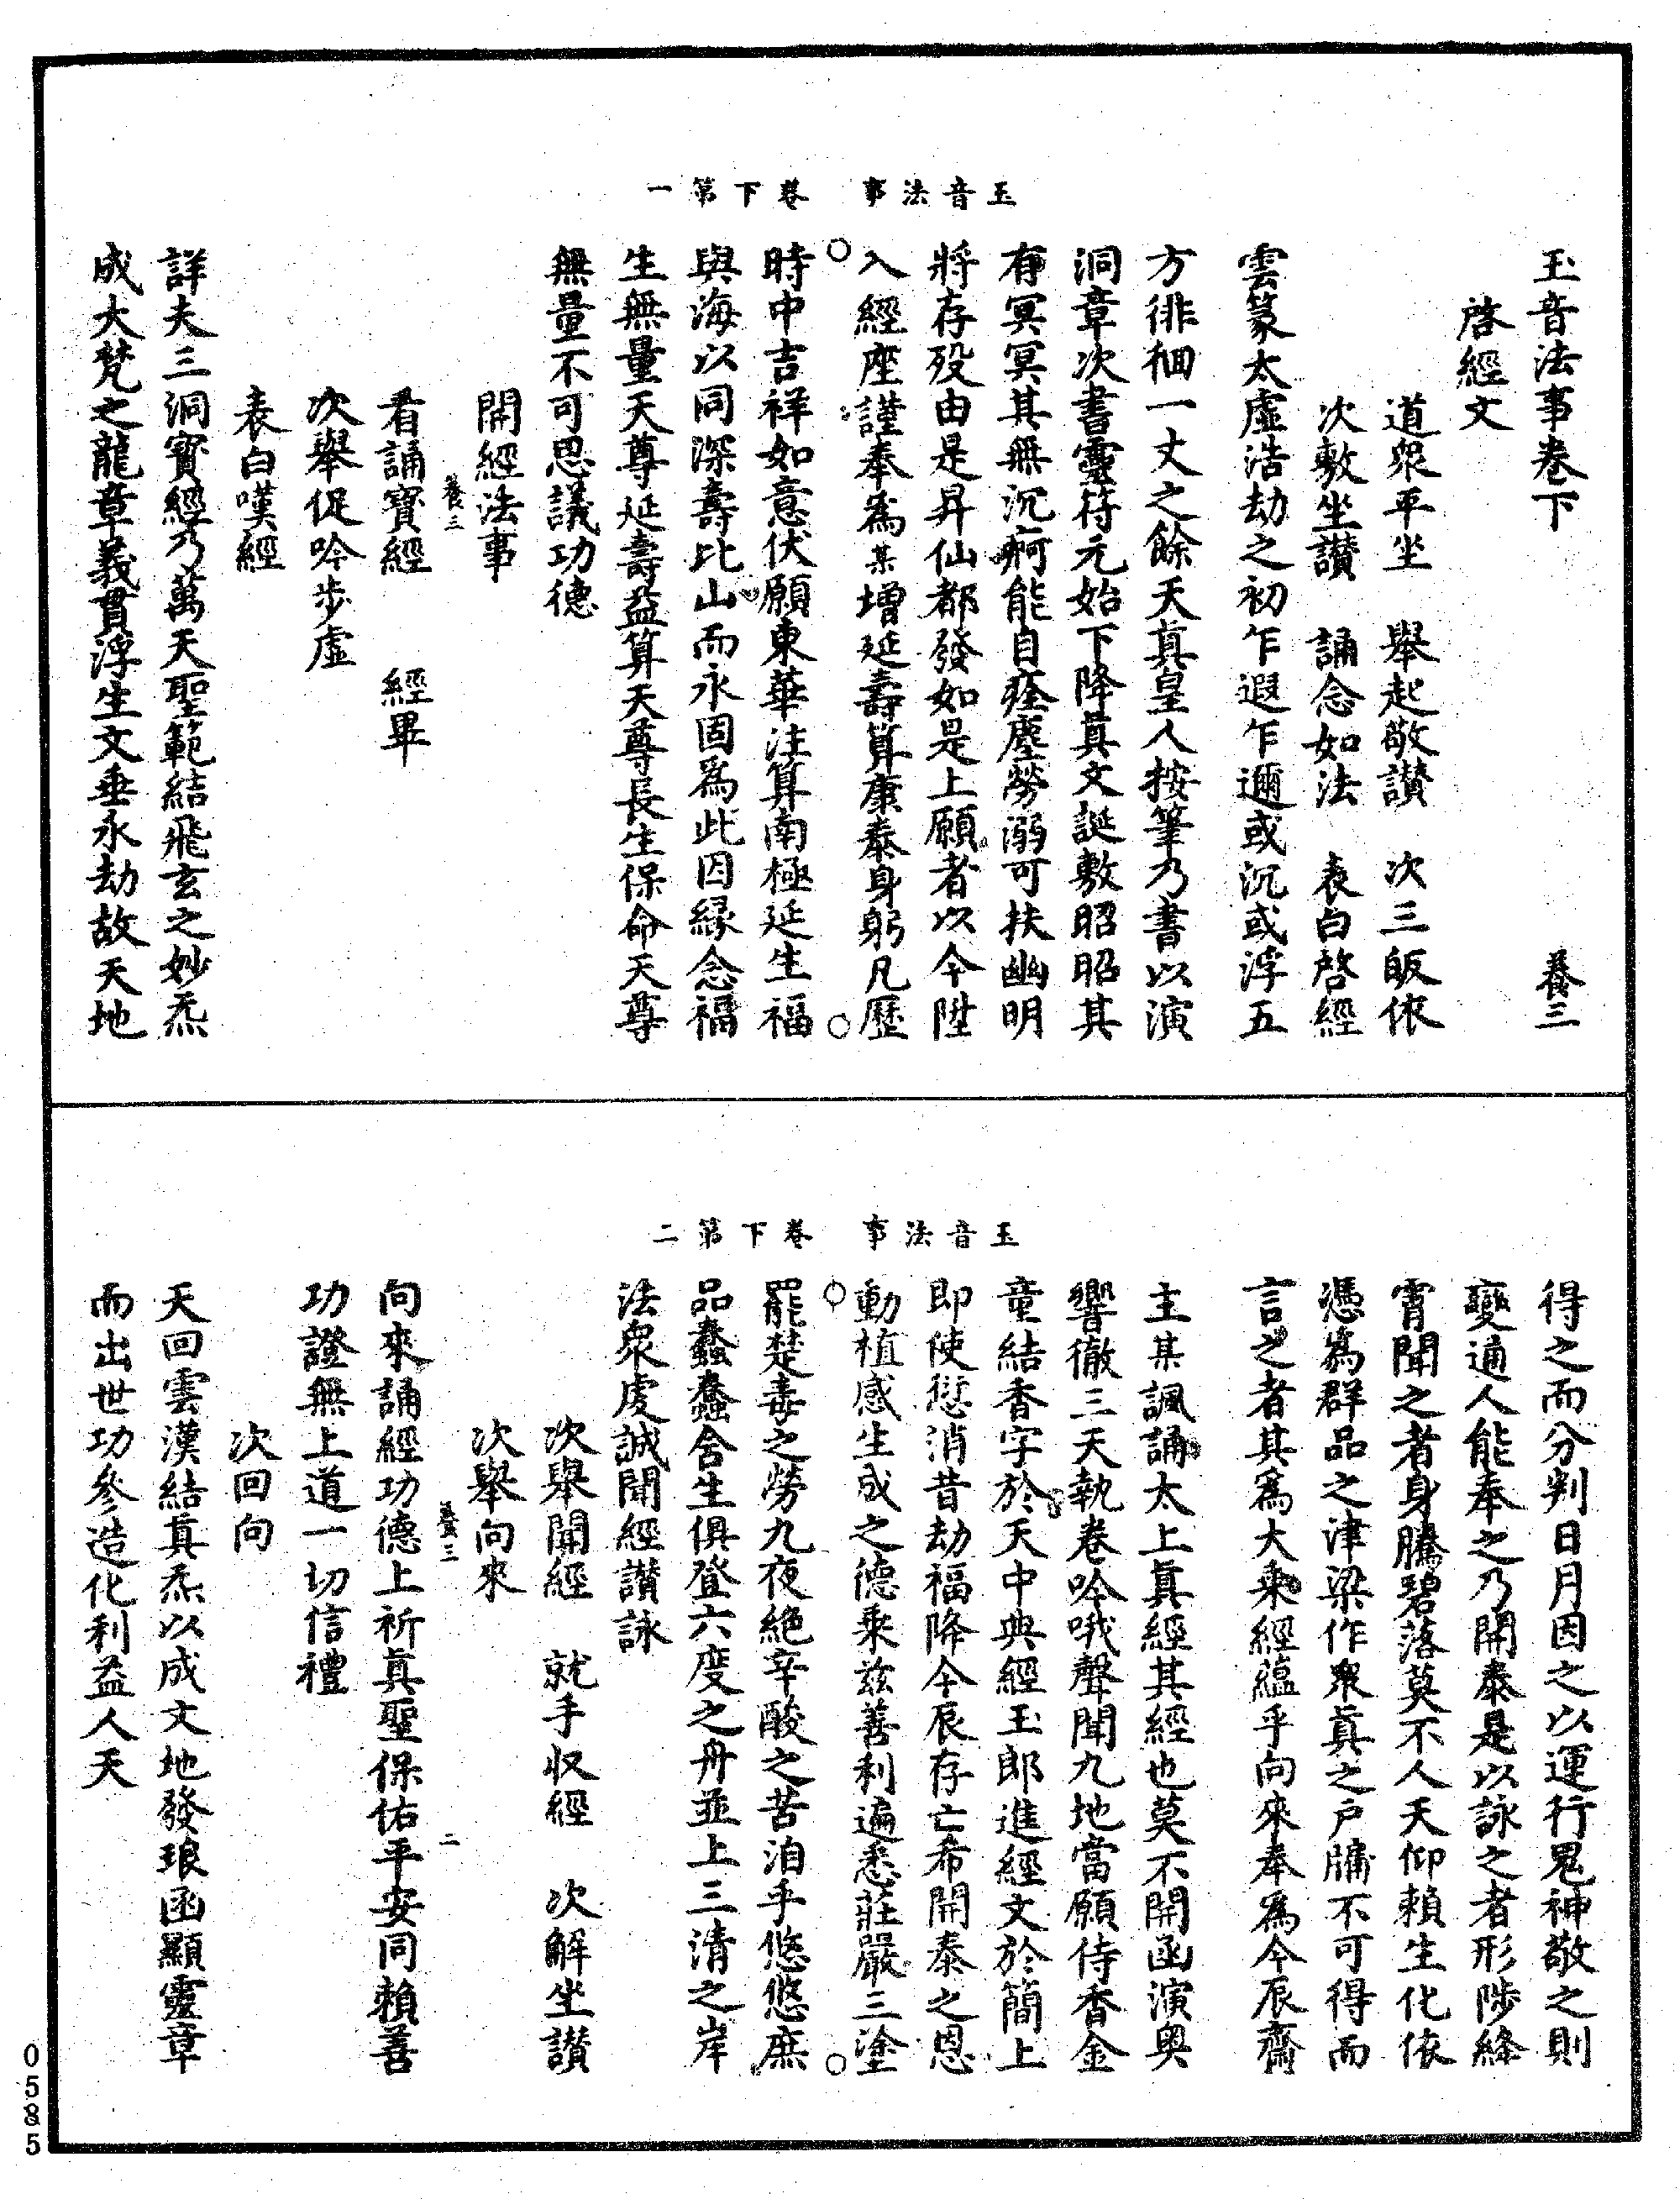 玉音法事　卷下第一
玉音法事卷下　養三
啓經文
道衆平坐　舉起敬讃　次三皈依
次敷坐讃　誦念如法　表白啓經
雲篆太虛浩劫之初乍遐乍邇或沉或浮五
方徘徊一丈之餘天真皇人按筆乃書以演
洞章次書靈符元始下降真文誕敷昭昭其
有冥冥其無沉痾能自痊塵勞溺可扶幽明
將存殁由是昇仙都發如是上願者以今陞
入經座謹奉爲某增延壽算康泰身躬凡歷
時中吉祥如意伏願東華注算南極延生福
與海以同深壽比山而永固爲此因縁念福
生無量天尊延壽益算天尊長生保命天尊
無量不可思議功德
開經法事
養三
看誦寳經　經畢
次舉促吟步虛
表白嘆經
詳夫三洞寳經乃萬天聖範結飛玄之妙炁
成大梵之龍章義貫浮生文垂永劫故天地
玉音法事　卷下第二
得之而分判日月因之以運行鬼神敬之則
變通人能奉之乃開泰是以詠之者形陟絳
霄聞之者身騰碧落莫不人天仰賴生化依
憑爲群品之津梁作衆眞之户牗不可得而
言之者其爲大乘經蘊乎向來奉爲今辰齋
主某諷誦太上眞經其經也莫不開函演奥
響徹三天執卷吟哦聲聞九地當願侍香金
童結香字於天中典經玉郎進經文於簡上
即使愆消昔劫福降今辰存亡希開泰之恩
動植感生成之德乘兹善利遍悉莊嚴三塗
罷楚毒之勞九夜絶辛酸之苦洎乎悠悠庶
品蠢蠢含生俱登六度之舟並上三清之岸
法衆虔誠聞經讃詠
次舉開經　就手収經　次解坐讃
次舉向來
養三　二
向來誦經功德上祈眞聖保佑平安同賴善
功證無上道一切信禮
次回向
天回雲漢結眞炁以成文地發琅函顯靈章
而出世功參造化利益人天
0585